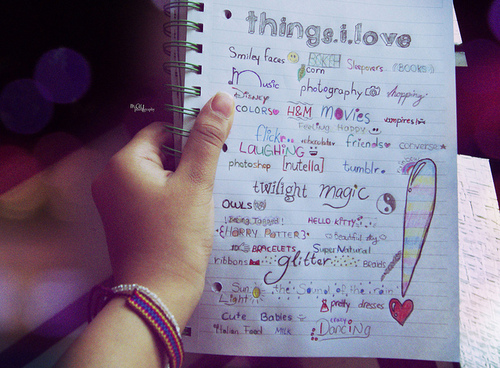 things.i.love
Smiley faces Sleepovers {BOOKS}
corn
Music photography shopping
Disney
COLORS H&M MOVIES vampires
Feeling Happy
flickr.. chocolate friends converse
LAUGHING
photoshop [nutella] tumblr.
twilight magic
OWLS
being Tagged! HELLO KITTY
{HARRY POTTER} beautiful day
BRACELETS SuperNatural
ribbons glitter Braids
Sun the Sound of the rain
Light pretty dresses
Cute Babies crazy
Italian Food MILK Dancing
photography